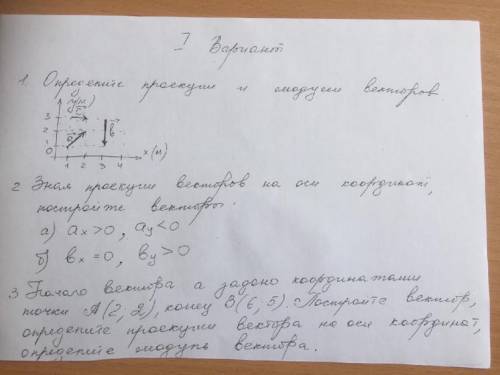 I Вариант
1. Определите проекции и модули векторов
y(м)
3 c
2
1 a b
0
1 2 3 4 x(м)
2 Зная проекции векторов на оси координат,
постройте векторы.
а) ax>0, ay<0
б) bx=0, by>0
3 Начало вектора а задано координатами
точки A(2, 2), конец B(6, 5). Постройте вектор,
определите проекции вектора на оси координат,
определите модуль вектора.